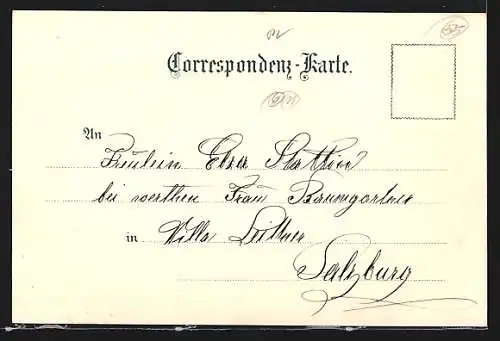 Correspondenz-Karte.
An
Fräulein Elsa
bei werthen Frau Baumgartner
in Villa Leithner
Salzburg